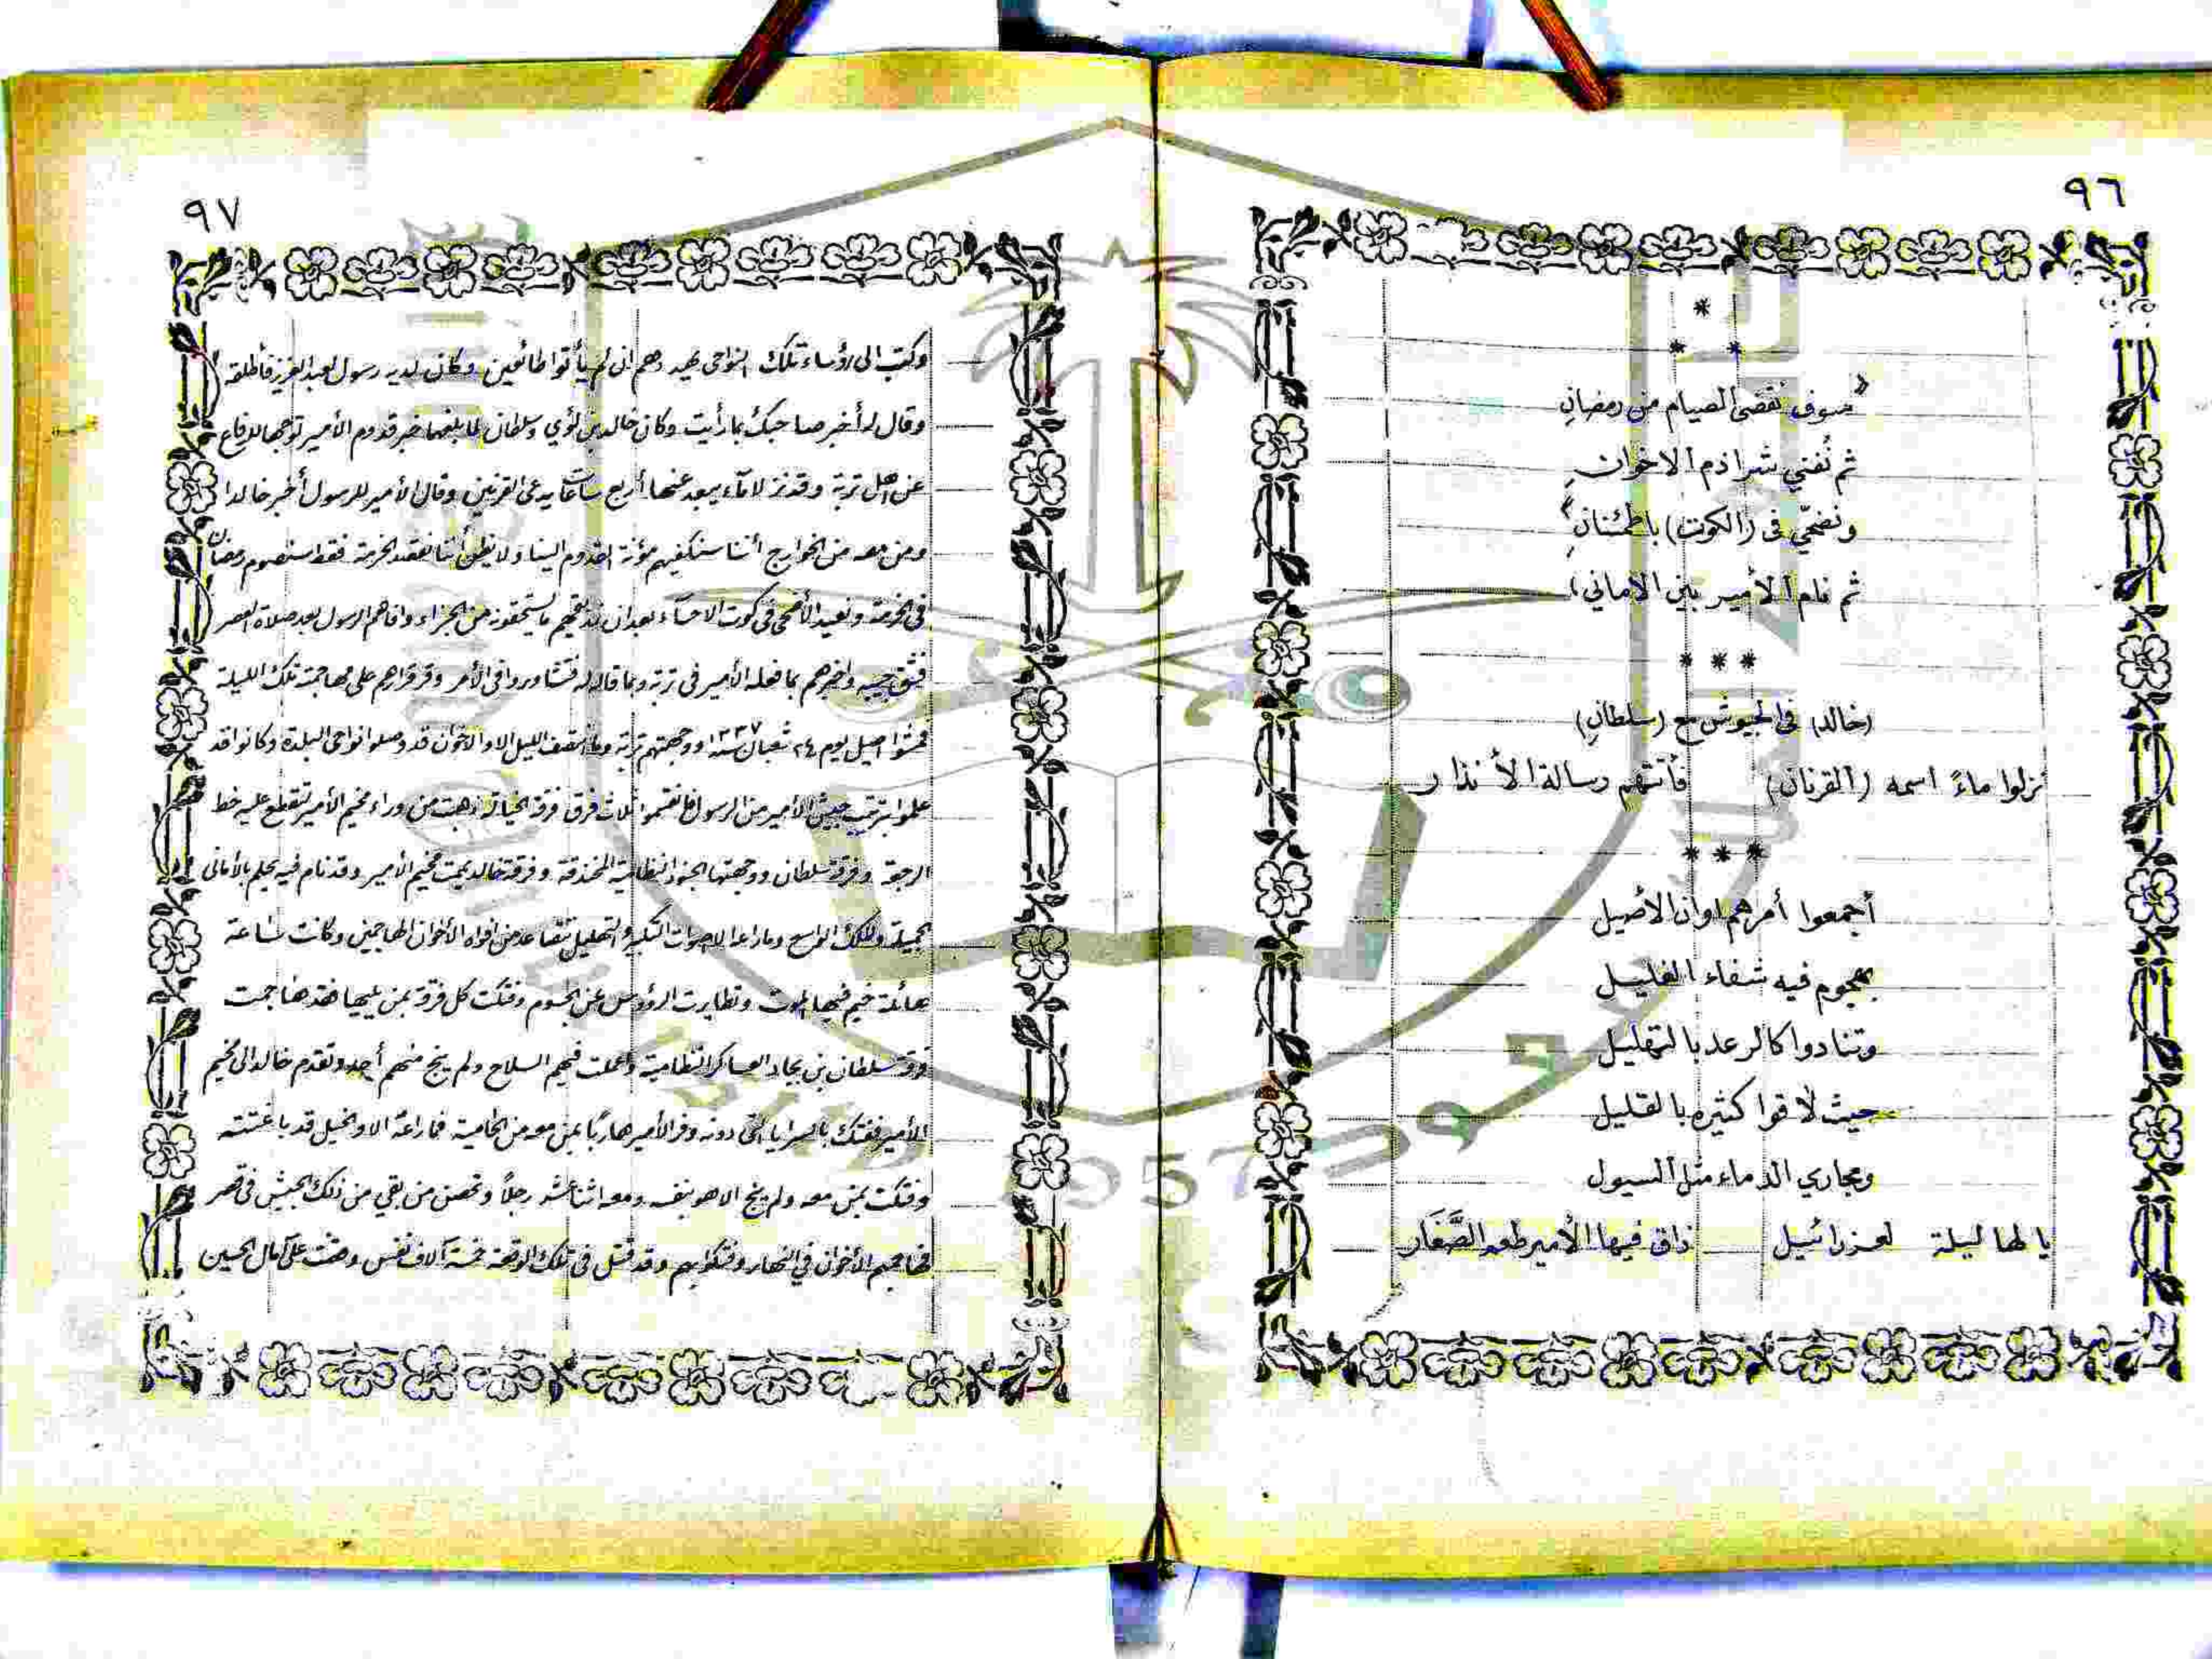 ٩٦
*
* *
«سوف نقضي الصيام من رمضانِ
ثم نُفني شراذم الاخوانِ
ونضحّي في (الكوت) باطمئنانِ»
ثم نام الأمير بين الاماني،
* * *
(خالد) في الجيوش مع (سلطانِ)
نزلوا ماءً اسمه (القرنان) فأتتهم رسالة الأنذار
* * *
أجمعوا أمرهم اوان الأصيل
بهجوم فيه شفاء الغليل
وتنادوا كالرعد بالتهليل
حيث لاقوا كثيره بالقليل
ومجاري الدماء مثل السيول
يا لها ليلة لعزرائيل ذاق فيها الأمير طعم الصَّغَار
٩٧
وكتب الى رؤساء تلك النواحى يهددهم ان لم يأتوا طائعين وكان لديه رسول لعبدالعزيز فأطلقه
وقال له أخبر صاحبك بما رأيت وكان خالد بن لؤي وسلطان لما بلغهما خبر قدوم الأمير توجها للدفاع
عن اهل تربة وقد نزلا ماء يبعد عنها أربع ساعات يدعى القرنين وقال الأمير للرسول أخبر خالدا
ومن معه من الخوارج أننا سنكفيهم مؤنة القدوم الينا ولا يظن أننا نقصد الخرمة فقط سنصوم رمضان
في الخرمة ونعيد الأضحى في كوت الاحساء بعد ان نذيقهم ما يستحقونه من الجزاء وافاهم الرسول بعد صلاة العصر
فشق جيبه واخبرهم بما فعله الأمير في تربة وبما قاله له فتشاوروا في الأمر وقر قرارهم على مهاجمته تلك الليلة
فمشوا اصيل يوم ٢٤ شعبان سنة ١٣٣٧ ووجهتهم تربة وما انتصف الليل الا والاخوان قد وصلوا نواحى البلدة وكانوا قد
علموا بترتيب جيش الأمير من الرسول فانقسموا ثلاث فرق فرقة الخيالة ذهبت من وراء مخيم الأمير لتقطع عليه خط
الرجوع وفرقة سلطان ووجهتها الجنود النظامية المخندقة وفرقة خالد يممت مخيم الأمير وقد نام فيه يحلم بالأمانى
الجميلة والملك الواسع وما راعه الا صوات التكبير والتهليل تتصاعد من افواه الأخوان المهاجمين وكانت ساعة
هائلة خيم فيها الموت وتطايرت الرؤوس عن الجسوم وفتكت كل فرقة بمن يليها فقد هاجمت
فرقة سلطان بن بجاد العساكر النظامية واعملت فيهم السلاح ولم ينج منهم أحد وتقدم خالد الى مخيم
الأمير ففتك بالسرايا التى دونه وفر الأمير هاربًا بمن معه من الحامية فما راعه الا والخيل قد باغتته
وفتكت بمن معه ولم ينج الا هو بنفسه ومعه اثنا عشر رجلاً وتحصن من بقي من ذلك الجيش في قصر
فهاجمهم الأخوان في النهار وفتكوا بهم وقد قتل في تلك الوقعة خمسة آلاف نفس وقضت على آمال الحسين